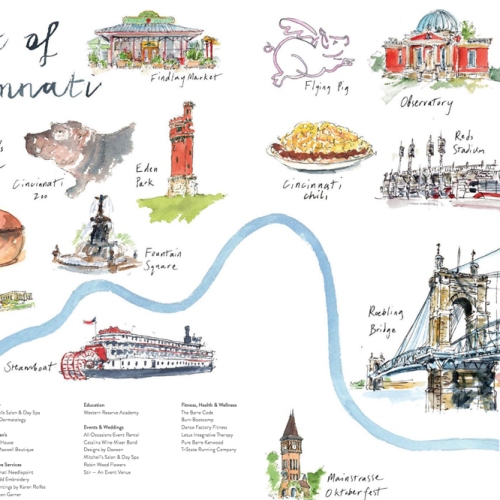 of
Findlay Market
Flying Pig
Observatory
Cincinnati
Zoo
Eden
Park
Cincinnati
Chili
Reds
Stadium
Fountain
Square
Roebling
Bridge
Steamboat
Mainstrasse
Oktoberfest
Education
Western Reserve Academy
Events & Weddings
All-Occasions Event Rental
Catalina Wine Mixer Band
Designs by Daween
Mitchell's Salon & Day Spa
Robin Wood Flowers
Stir — An Event Venue
Fitness, Health & Wellness
The Barre Code
Burn Bootcamp
Dance Factory Fitness
Lotus Integrative Therapy
Pure Barre Kenwood
Tri-State Running Company